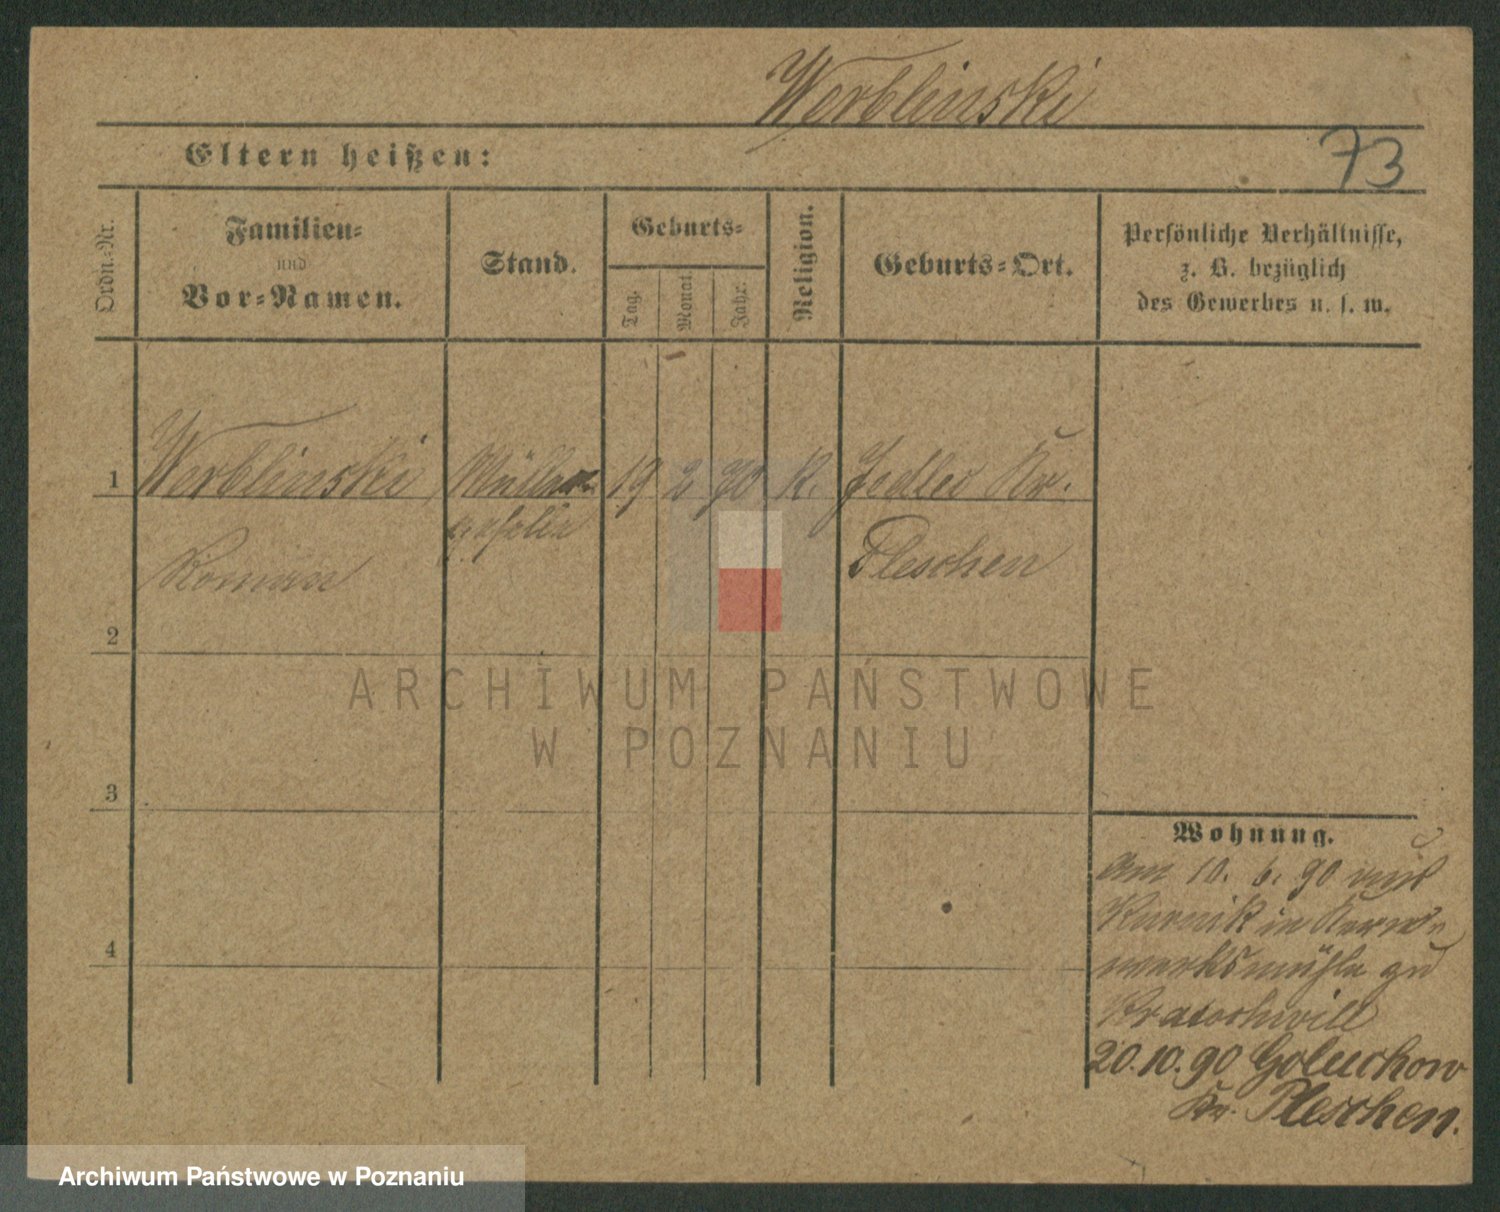 Werblinski
Eltern heißen:
73
Ordn.-Nr.
Familien-
und
Vor-Namen.
Stand.
Geburts-
Tag.
Monat.
Jahr.
Religion.
Geburts-Ort.
Persönliche Verhältnisse,
z. B. bezüglich
des Gewerbes u. s. w.
1 Werblinski Müller 19 2 70 K. Jedlec Kr.
geselle
Roman Pleschen
2
ARCHIWUM PAŃSTWOWE
W POZNANIU
3
Wohnung.
am 10. 6. 90 aus
Kurnik in
werksmühle zu
Kratochwill
4
20.10.90 Goluchow
Kr. Pleschen.
Archiwum Państwowe w Poznaniu